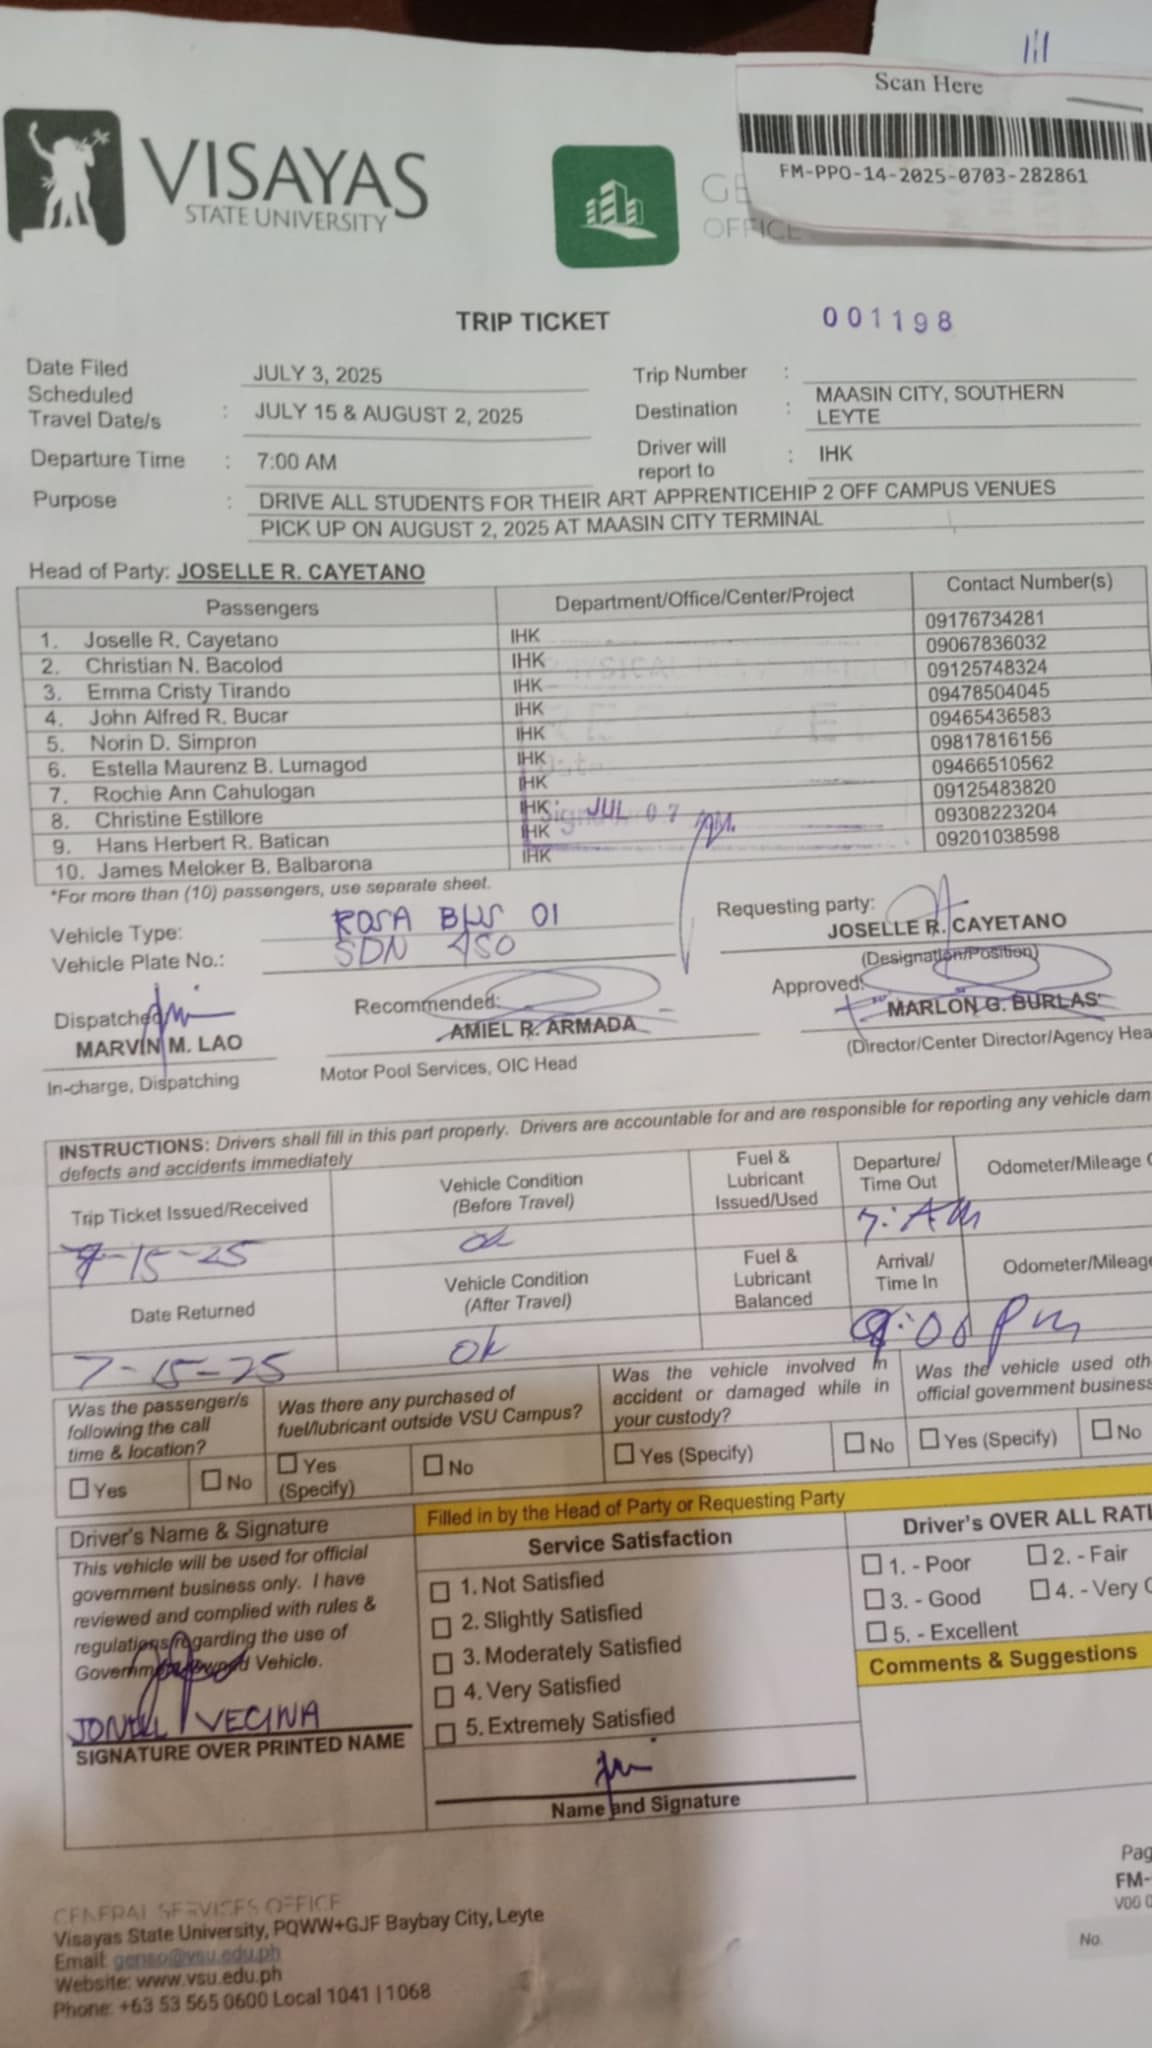 Scan Here
FM-PPO-14-2025-0703-282861
VISAYAS
STATE UNIVERSITY
GE
OFFICE
TRIP TICKET
001198
Date Filed JULY 3, 2025
Trip Number :
Scheduled Travel Date/s : JULY 15 & AUGUST 2, 2025
Destination : MAASIN CITY, SOUTHERN LEYTE
Departure Time : 7:00 AM
Driver will report to : IHK
Purpose : DRIVE ALL STUDENTS FOR THEIR ART APPRENTICEHIP 2 OFF CAMPUS VENUES
PICK UP ON AUGUST 2, 2025 AT MAASIN CITY TERMINAL
Head of Party: JOSELLE R. CAYETANO
Passengers Department/Office/Center/Project Contact Number(s)
1. Joselle R. Cayetano IHK 09176734281
2. Christian N. Bacolod IHK 09067836032
3. Emma Cristy Tirando IHK 09125748324
4. John Alfred R. Bucar IHK 09478504045
5. Norin D. Simpron IHK 09465436583
6. Estella Maurenz B. Lumagod IHK 09817816156
7. Rochie Ann Cahulogan IHK 09466510562
8. Christine Estillore IHK 09125483820
9. Hans Herbert R. Batican IHK 09308223204
10. James Meloker B. Balbarona IHK 09201038598
JUL 07
*For more than (10) passengers, use separate sheet.
Vehicle Type: ROSA BUS 01
Vehicle Plate No.: SDN 450
Requesting party:
JOSELLE R. CAYETANO
(Designation/Position)
Dispatched
MARVIN M. LAO
In-charge, Dispatching
Recommended:
AMIEL R. ARMADA
Motor Pool Services, OIC Head
Approved:
MARLON G. BURLAS
(Director/Center Director/Agency Hea
INSTRUCTIONS: Drivers shall fill in this part properly. Drivers are accountable for and are responsible for reporting any vehicle dam
defects and accidents immediately
Trip Ticket Issued/Received
Vehicle Condition (Before Travel)
Fuel & Lubricant Issued/Used
Departure/ Time Out
Odometer/Mileage
7-15-25
ok
7: AM
Date Returned
Vehicle Condition (After Travel)
Fuel & Lubricant Balanced
Arrival/ Time In
Odometer/Mileage
7-15-25
ok
9:00 PM
Was the passenger/s following the call time & location?
Was there any purchased of fuel/lubricant outside VSU Campus?
Was the vehicle involved in accident or damaged while in your custody?
Was the vehicle used oth
official government business
Yes No
Yes (Specify) No
Yes (Specify) No
Yes (Specify) No
Driver's Name & Signature
This vehicle will be used for official
government business only. I have
reviewed and complied with rules &
regulations regarding the use of
Government owned Vehicle.
JONELL VECINA
SIGNATURE OVER PRINTED NAME
Filled in by the Head of Party or Requesting Party
Service Satisfaction
1. Not Satisfied
2. Slightly Satisfied
3. Moderately Satisfied
4. Very Satisfied
5. Extremely Satisfied
Name and Signature
Driver's OVER ALL RATI
1. - Poor 2. - Fair
3. - Good 4. - Very G
5. - Excellent
Comments & Suggestions
GENERAL SERVICES OFFICE
Visayas State University, PQWW+GJF Baybay City, Leyte
Email: genso@vsu.edu.ph
Website: www.vsu.edu.ph
Phone: +63 53 565 0600 Local 1041 | 1068
Pag
FM-
V00 0
No.